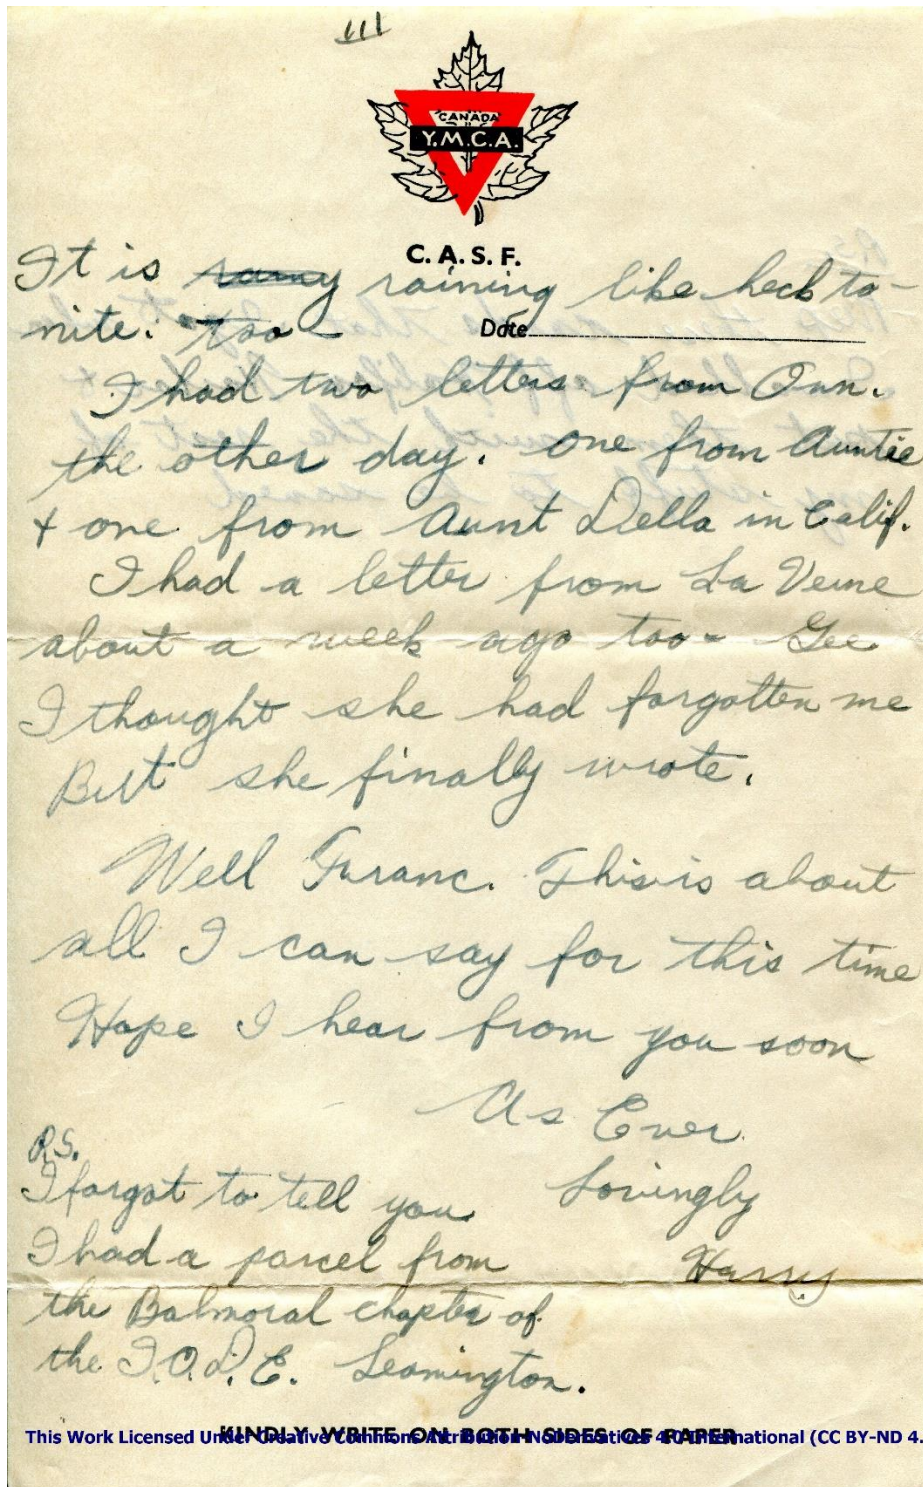 III
CANADA
Y.M.C.A.
C. A. S. F.
It is rainy raining like heck to-
nite. too
Date
I had two letters from Onn.
the other day. One from Auntie
+ one from Aunt Della in Calif.
I had a letter from La Verne
about a week ago too - Gee
I thought she had forgotten me
But she finally wrote.
Well Franc. This is about
all I can say for this time
Hope I hear from you soon
As Ever
Lovingly
Harry
P.S.
I forgot to tell you
I had a parcel from
the Balmoral chapter of
the I.O.D.E. Leamington.
KINDLY WRITE ON BOTH SIDES OF PAPER
This Work Licensed Under Creative Commons Attribution-NoDerivatives 4.0 International (CC BY-ND 4.